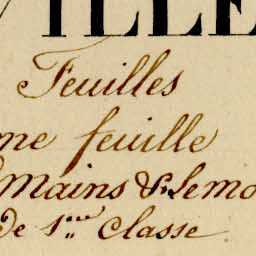 VILLE
Feuilles
me feuille
Mains & lemo
De 1ère Classe